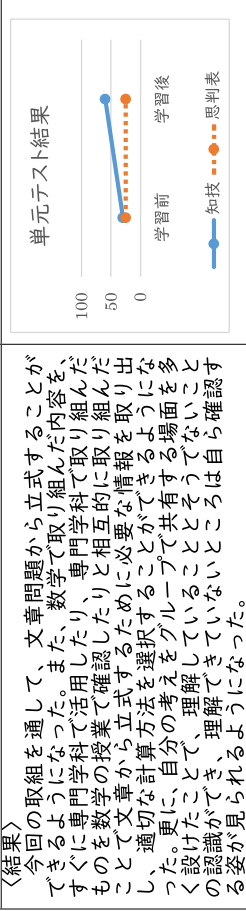 〈結果〉
　今回の取組を通して、文章問題から立式することが
できるようになった。また、数学で取り組んだ内容を、
すぐに専門学科で活用したり、専門学科で取り組んだ
ものを数学の授業で確認したりと相互的に取り組んだ
ことで文章から立式するために必要な情報を取り出
し、適切な計算方法を選択することができるようにな
った。更に、自分の考えをグループで共有する場面を多
く設けたことで、理解していることとそうでないこと
の認識ができ、理解できていないところは自ら確認す
る姿が見られるようになった。
単元テスト結果
100
50
0
学習前
学習後
知技
思判表